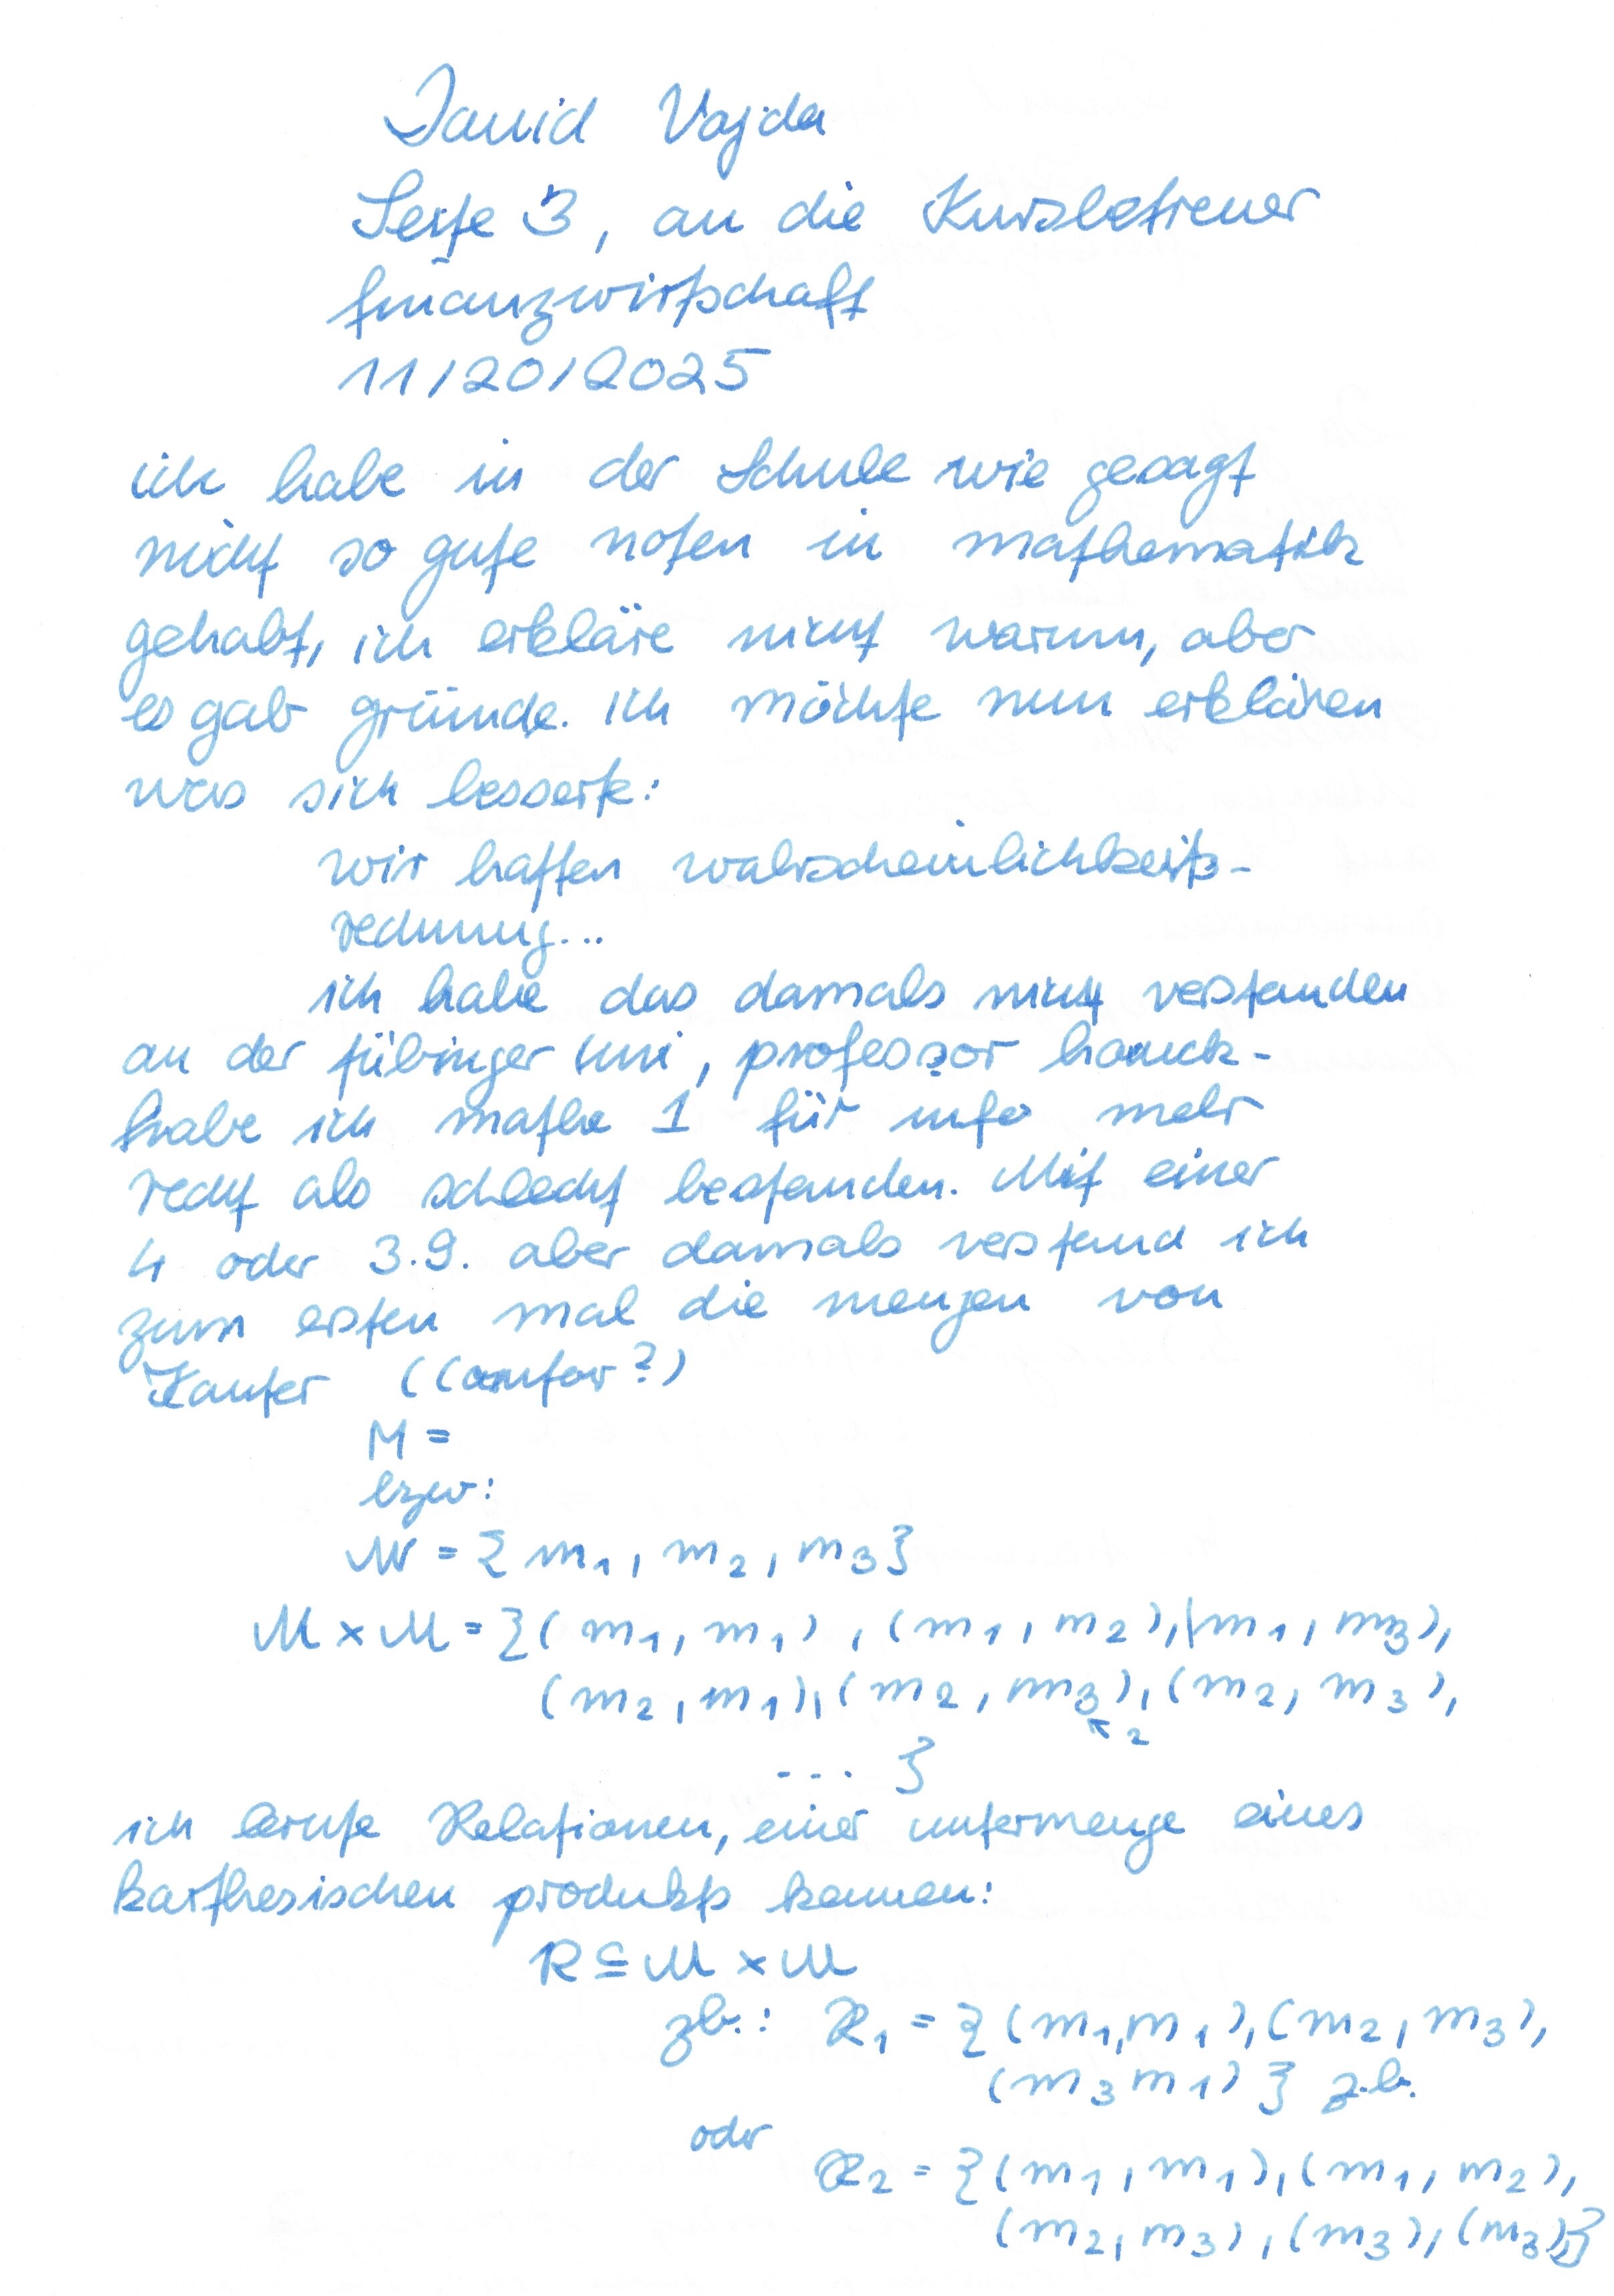 David Vajda
Seite 3, an die Kursbetreuer
finanzwirtschaft
11/20/2025
ich habe in der Schule wie gesagt
nicht so gute noten in mathematik
gehabt, ich erkläre nicht warum, aber
es gab gründe. ich möchte nun erklären
was sich besserte:
wir hatten wahrscheinlichkeits-
rechnung...
ich habe das damals nicht verstanden
an der tübinger uni, professor hauck-
habe ich mathe 1 für info mehr
recht als schlecht bestanden. Mit einer
4 oder 3.9. aber damals verstand ich
zum ersten mal die mengen von
Kanter ((antor?)
M =
bzw:
M = { m1, m2, m3 }
M × M = {( m1, m1), (m1, m2), (m1, m3),
(m2, m1), (m2, m3), (m2, m3),
2
... }
ich lernte Relationen, einer untermenge eines
karthesischen produkts kennen:
R ⊆ M × M
zb.: R1 = {(m1,m1), (m2, m3),
(m3 m1) } z.b.
oder
R2 = {(m1, m1), (m1, m2),
(m2, m3), (m3), (m3)}